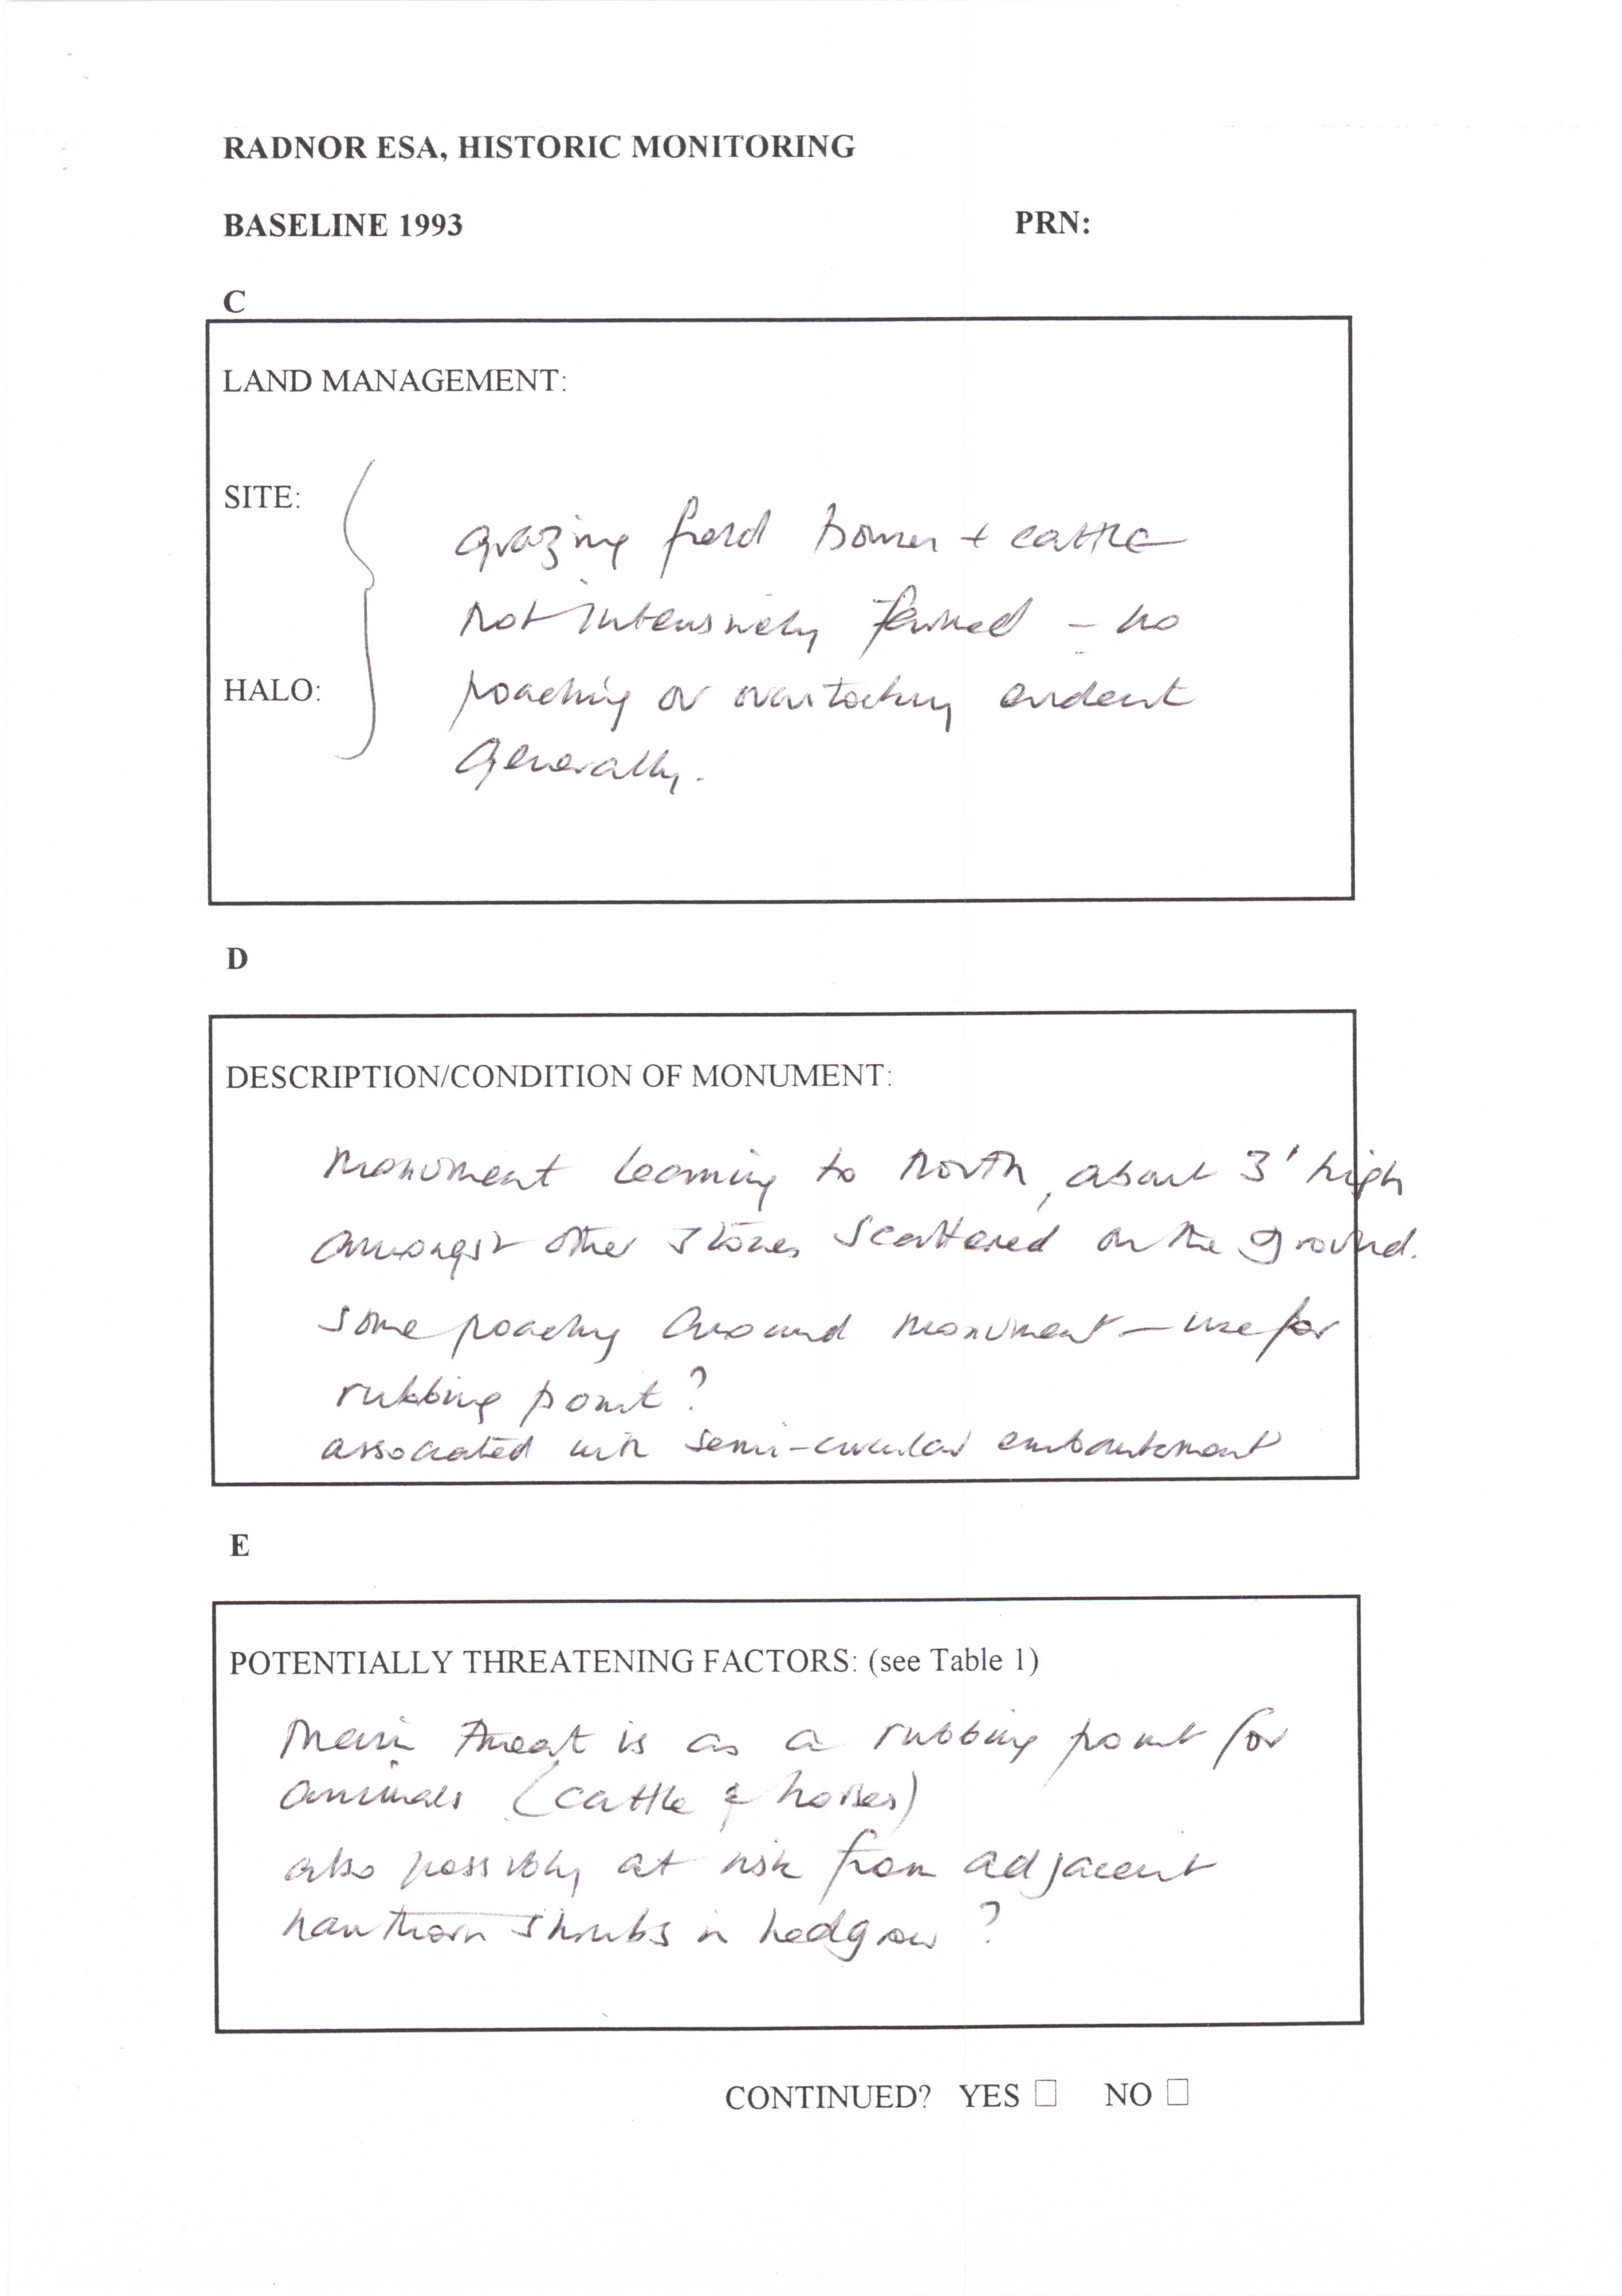 RADNOR ESA, HISTORIC MONITORING
BASELINE 1993 PRN:
C
LAND MANAGEMENT:
SITE:
grazing field horses + cattle
not intensively farmed - no
HALO:
poaching or overstocking evident
generally.
D
DESCRIPTION/CONDITION OF MONUMENT:
monument leaning to North, about 3' high
amongst other stones scattered on the ground.
some poaching around monument - use for
rubbing point?
associated with semi-circular embankment
E
POTENTIALLY THREATENING FACTORS: (see Table 1)
Main threat is as a rubbing point for
animals (cattle & horses)
also possibly at risk from adjacent
hawthorn shrubs in hedgrow?
CONTINUED? YES ☐ NO ☐